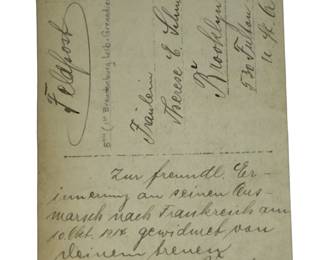 Feldpost
5ten (1st Brandenburg Leib-Grenadier
Fräulein
Therese E.
Brooklyn
530 Fulton
U. St. A
Zur freundl. Er-
innerung an seinen Aus-
marsch nach Frankreich am
10. Okt. 1914 gewidmet von
Deinem treuen